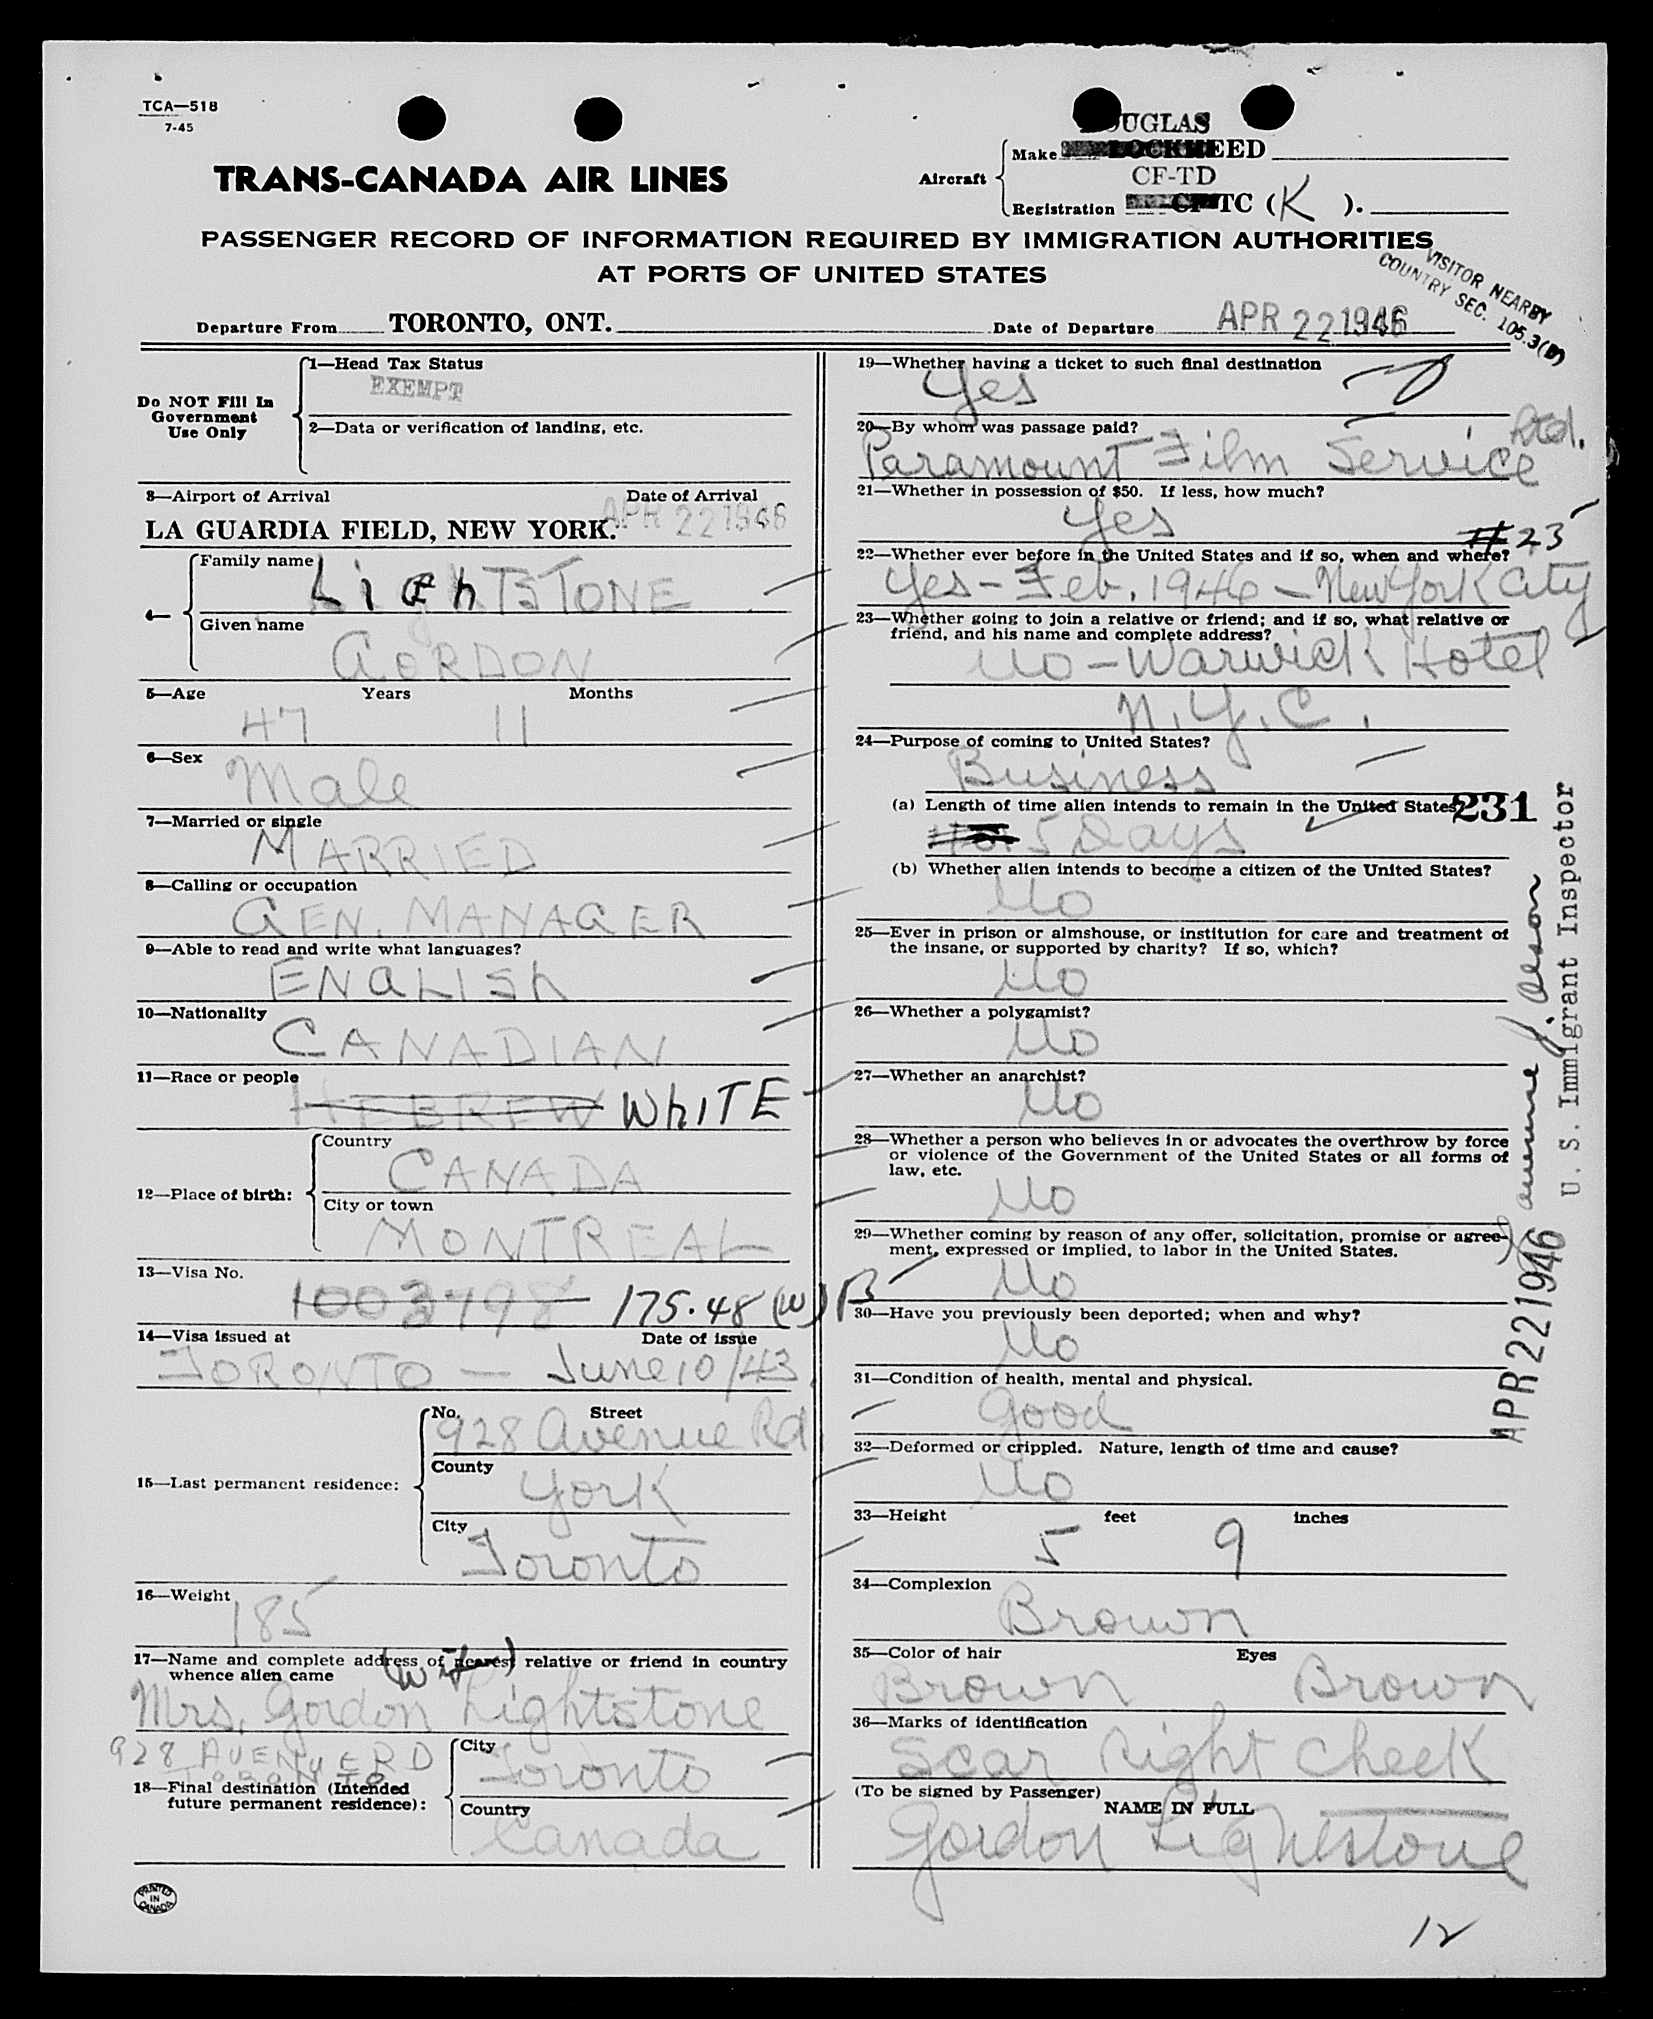 TCA—518
7-45
DOUGLAS
TRANS-CANADA AIR LINES
Aircraft
Make LOCKHEED
CF-TD
Registration CF-TC (K).
PASSENGER RECORD OF INFORMATION REQUIRED BY IMMIGRATION AUTHORITIES
AT PORTS OF UNITED STATES
VISITOR NEARBY
COUNTRY SEC. 105.3(B)
Departure From TORONTO, ONT. Date of Departure APR 22 1946
Do NOT Fill In
Government
Use Only
1—Head Tax Status
EXEMPT
2—Data or verification of landing, etc.
3—Airport of Arrival Date of Arrival
LA GUARDIA FIELD, NEW YORK. APR 22 1946
4— Family name
LIGHTSTONE
Given name
GORDON
5—Age Years Months
47 11
6—Sex
Male
7—Married or single
MARRIED
8—Calling or occupation
GEN. MANAGER
9—Able to read and write what languages?
ENGLISH
10—Nationality
CANADIAN
11—Race or people
HEBREW WHITE
12—Place of birth:
Country
CANADA
City or town
MONTREAL
13—Visa No.
1003798 175.48 (W) B
14—Visa issued at Date of issue
TORONTO — June 10/43
15—Last permanent residence:
No. Street
928 Avenue Rd
County
York
City
Toronto
16—Weight
185
17—Name and complete address of nearest relative or friend in country
whence alien came
(wife)
Mrs. Gordon Lightstone
928 AVENUE RD
TORONTO
18—Final destination (Intended
future permanent residence):
City
Toronto
Country
Canada
PRINTED
IN
CANADA
19—Whether having a ticket to such final destination
Yes
20—By whom was passage paid?
Paramount Film Service Ltd.
21—Whether in possession of $50. If less, how much?
Yes
#23
22—Whether ever before in the United States and if so, when and where?
Yes - Feb. 1946 - New York City
23—Whether going to join a relative or friend; and if so, what relative or
friend, and his name and complete address?
No - Warwick Hotel
N.Y.C.
24—Purpose of coming to United States?
Business
(a) Length of time alien intends to remain in the United States?
5 Days
231
(b) Whether alien intends to become a citizen of the United States?
No
25—Ever in prison or almshouse, or institution for care and treatment of
the insane, or supported by charity? If so, which?
No
26—Whether a polygamist?
No
27—Whether an anarchist?
No
28—Whether a person who believes in or advocates the overthrow by force
or violence of the Government of the United States or all forms of
law, etc.
No
29—Whether coming by reason of any offer, solicitation, promise or agree-
ment, expressed or implied, to labor in the United States.
No
30—Have you previously been deported; when and why?
No
31—Condition of health, mental and physical.
Good
32—Deformed or crippled. Nature, length of time and cause?
No
33—Height feet inches
5 9
34—Complexion
Brown
35—Color of hair Eyes
Brown Brown
36—Marks of identification
Scar right cheek
(To be signed by Passenger)
NAME IN FULL
Gordon Lightstone
12
APR 22 1946
U. S. Immigrant Inspector